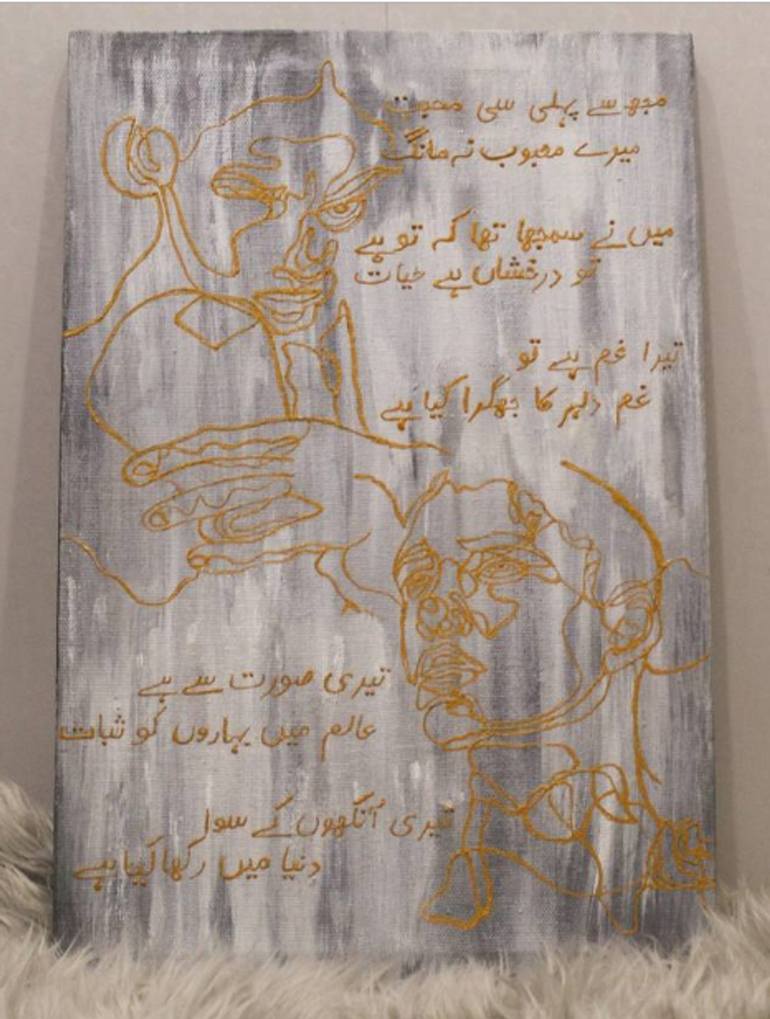 مجھ سے پہلی سی محبت
میرے محبوب نہ مانگ
میں نے سمجھا تھا کہ تو ہے
تو درخشاں ہے حیات
تیرا غم ہے تو
غم دلہر کا جھگڑا کیا ہے
تیری صورت سے ہے
عالم میں بہاروں کو ثبات
تیری آنکھوں کے سوا
دنیا میں رکھا کیا ہے